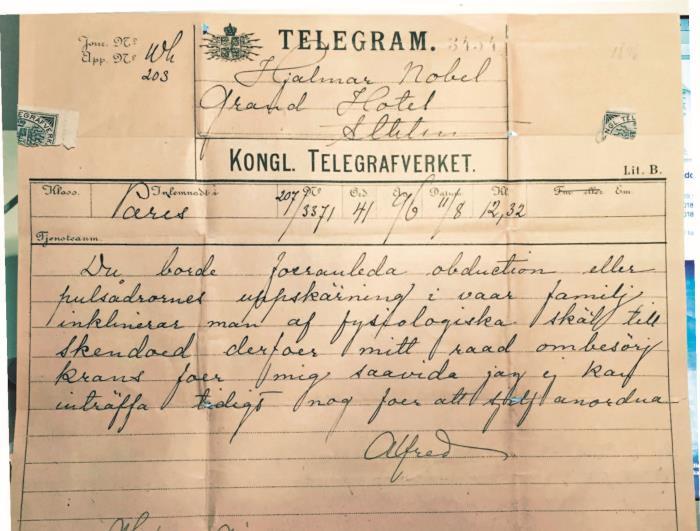 Jour. Nº
App. Nº Wh
203
TELEGRAM. 3434
Hjalmar Nobel
Grand Hotel
Sthlm
TELEGRAFVERK
NGL. TEL
KONGL. TELEGRAFVERKET.
Lit. B.
Klass. Inlemnadt i Nº Ord Datum Kl. Fm eller Em
Pares 207/3371 41 9/6 11/8 12,32
Tjensteanm.
Du borde foeranleda obduction eller
pulsådrornes uppskärning i vaar familj
inklinerar man af fysiologiska skäl till
skendoed derfoer mitt raad ombesörj
krans foer mig saavida jag ej kan
inträffa tidigt nog foer att sjelf anordna
Alfred